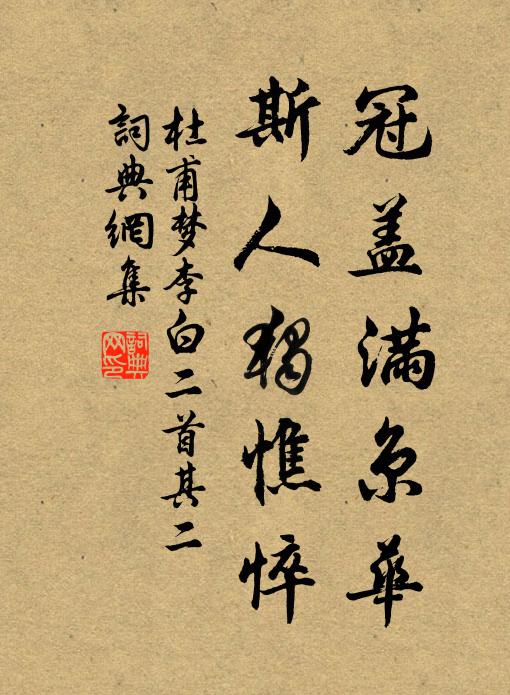 冠盖滿京華
斯人獨憔悴
杜甫梦李白二首其二
詞典網集
詞典網印